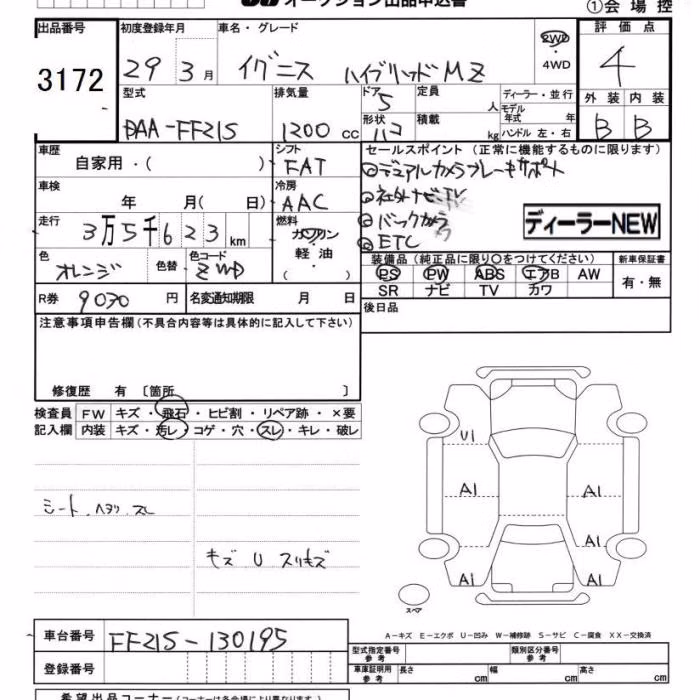 オークション出品申込書
①会場控
出品番号 初度登録年月 車名・グレード 評価点
3172
29年 3月 イグニス ハイブリッドMZ 2WD ・4WD 4
型式 排気量 ドア 定員 ディーラー・並行 外装 内装
DAA-FF21S 1200 cc 5 人 モデル年式 年 B B
形状 積載
ハコ kg ハンドル 左・右
車歴 シフト セールスポイント (正常に機能するものに限ります)
自家用・( ) FAT ◎デュアルカメラブレーキサポート
車検 冷房 ◎社外ナビ・TV
年 月( 日) AAC
走行 燃料 ◎バックカメラ
3万5千623km ガソリン ディーラーNEW
軽油・ ◎ETC
( )
色 色替 色コード
オレンジ ZWD
装備品 (純正品に限り○をつけてください) 新車保証書
PS PW ABS エアB AW 有・無
SR ナビ TV カワ
R券 9030 円 名変通知期限 月 日
後日品
注意事項申告欄 (不具合内容等は具体的に記入して下さい)
修復歴 有 〔箇所 〕
検査員 FW キズ・飛石・ヒビ割・リペア跡・×要
記入欄 内装 キズ・汚レ・コゲ・穴・スレ・キレ・破レ
U1
A1 A1
シート.ヘタリ.スレ
A1
キズ U スリキズ
A1 A1
スペア
A-キズ E-エクボ U-凹み W-補修跡 S-サビ C-腐食 XX-交換済
車台番号 FF21S-130195
型式指定番号 参考 類別区分番号 参考
登録番号
車庫証明用 参考 長さ cm 幅 cm 高さ cm
希望出品コーナー (コーナーは各会場により異なります)